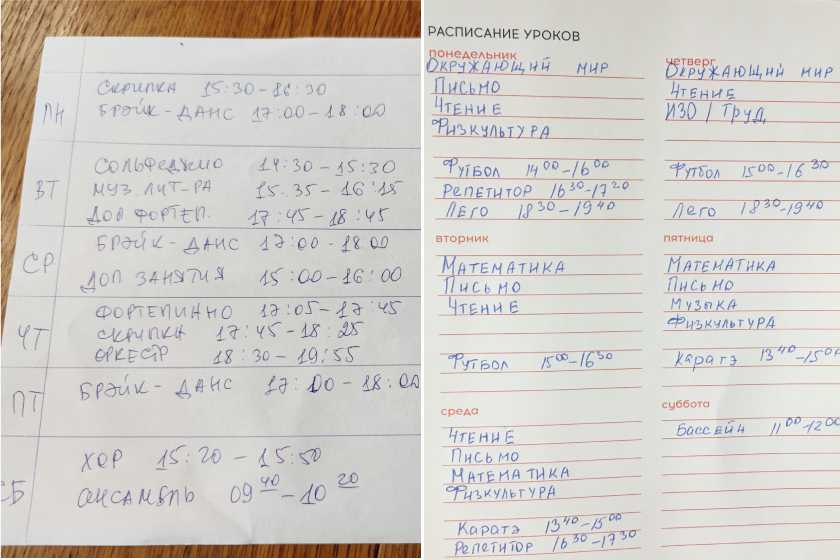 ПН
СКРИПКА 15:30-16:30
БРЭЙК-ДАНС 17:00-18:00
ВТ
СОЛЬФЕДЖИО 14:30-15:30
МУЗ. ЛИТ-РА 15.35-16:15
ДОП ФОРТЕП. 17:45-18:45
СР
БРЭЙК-ДАНС 17:00-18 00
ДОП ЗАНЯТИЯ 15:00-16:00
ЧТ
ФОРТЕПИННО 17:05-17:45
СКРИПКА 17:45-18:25
ОРКЕСТР 18:30-19:55
ПТ
БРЭЙК-ДАНС 17:00-18:00
СБ
ХОР 15:20-15:50
АНСАМБЛЬ 09 40-10 20
РАСПИСАНИЕ УРОКОВ
понедельник
ОКРУЖАЮЩИЙ МИР
ПИСЬМО
ЧТЕНИЕ
ФИЗКУЛЬТУРА
ФУТБОЛ 14 00-16 00
РЕПЕТИТОР 16 30-17 20
ЛЕГО 18 30-19 40
вторник
МАТЕМАТИКА
ПИСЬМО
ЧТЕНИЕ
ФУТБОЛ 15 00-16 30
среда
ЧТЕНИЕ
ПИСЬМО
МАТЕМАТИКА
ФИЗКУЛЬТУРА
КАРАТЭ 13 40-15 00
РЕПЕТИТОР 16 30-17 30
четверг
ОКРУЖАЮЩИЙ МИР
ЧТЕНИЕ
ИЗО / ТРУД
ФУТБОЛ 15 00-16 30
ЛЕГО 18 30-19 40
пятница
МАТЕМАТИКА
ПИСЬМО
МУЗЫКА
ФИЗКУЛЬТУРА
КАРАТЭ 13 40-15 00
суббота
БАССЕЙН 11 00-12 00